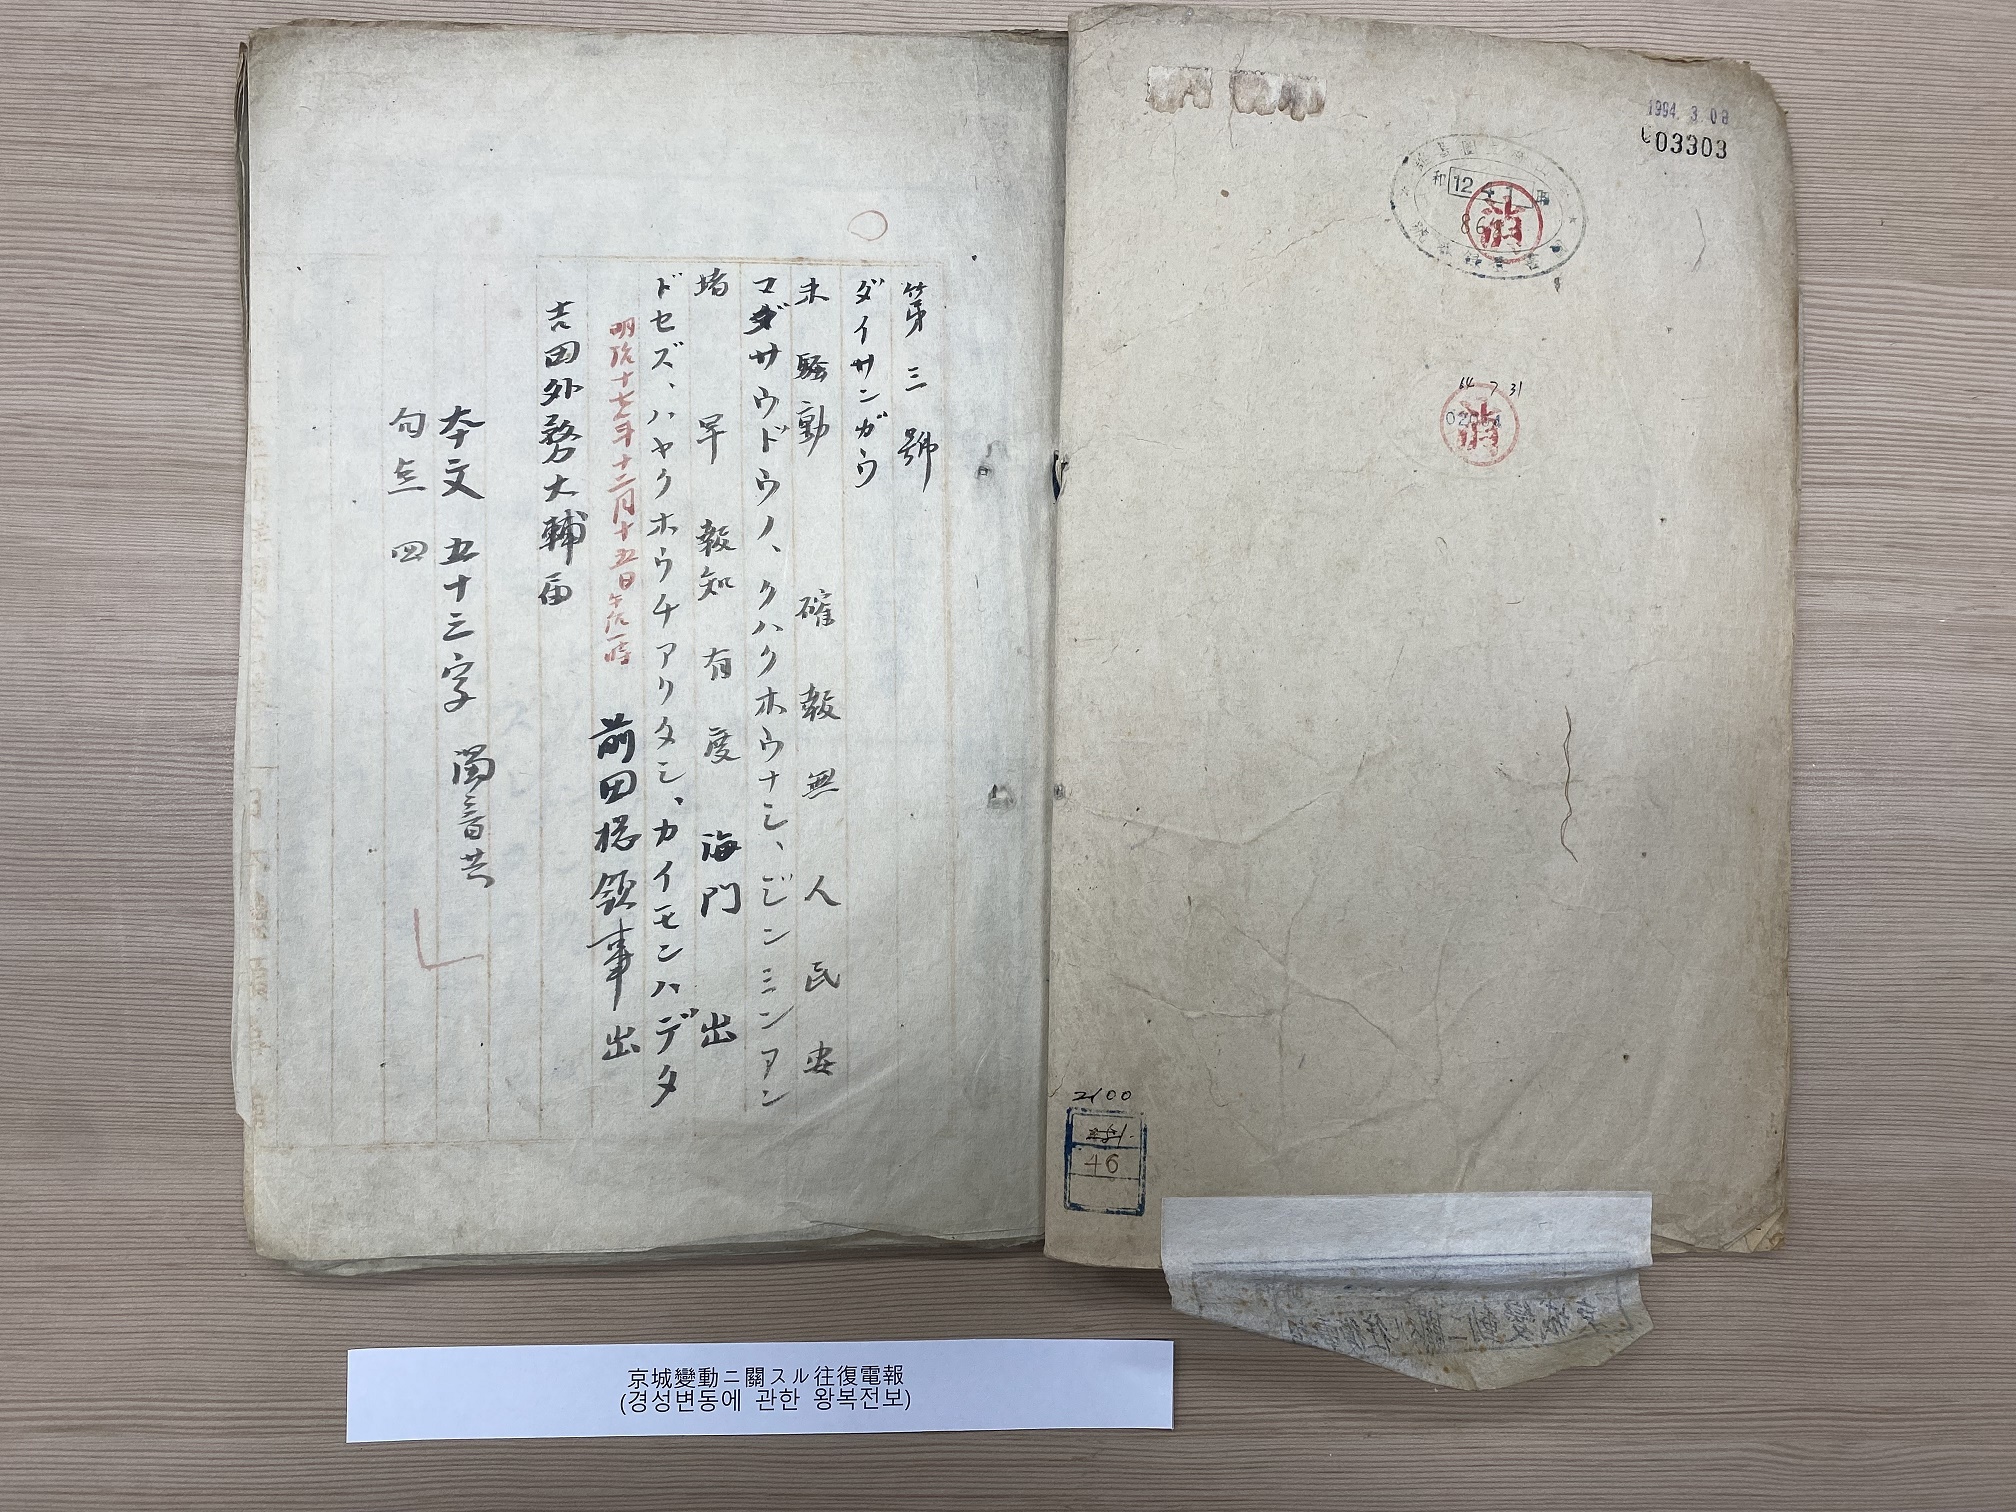 1994. 3. 08
03303
12
消
消
64 7 31
2100
46
第三號
ダイサンガウ
未騒動 確報無人民安
コダサウドウノ、クハクホウナシ、ジンミンアン
堵早報知有度海門出
ドセズ、ハヤクホウチアリタシ、カイモンハデタ
明治十七年十二月十五日午后一時
前田總領事出
吉田外務大輔届
本文五十三字 濁音共
句点四
京城變動ニ關スル往復電報
(경성변동에 관한 왕복전보)